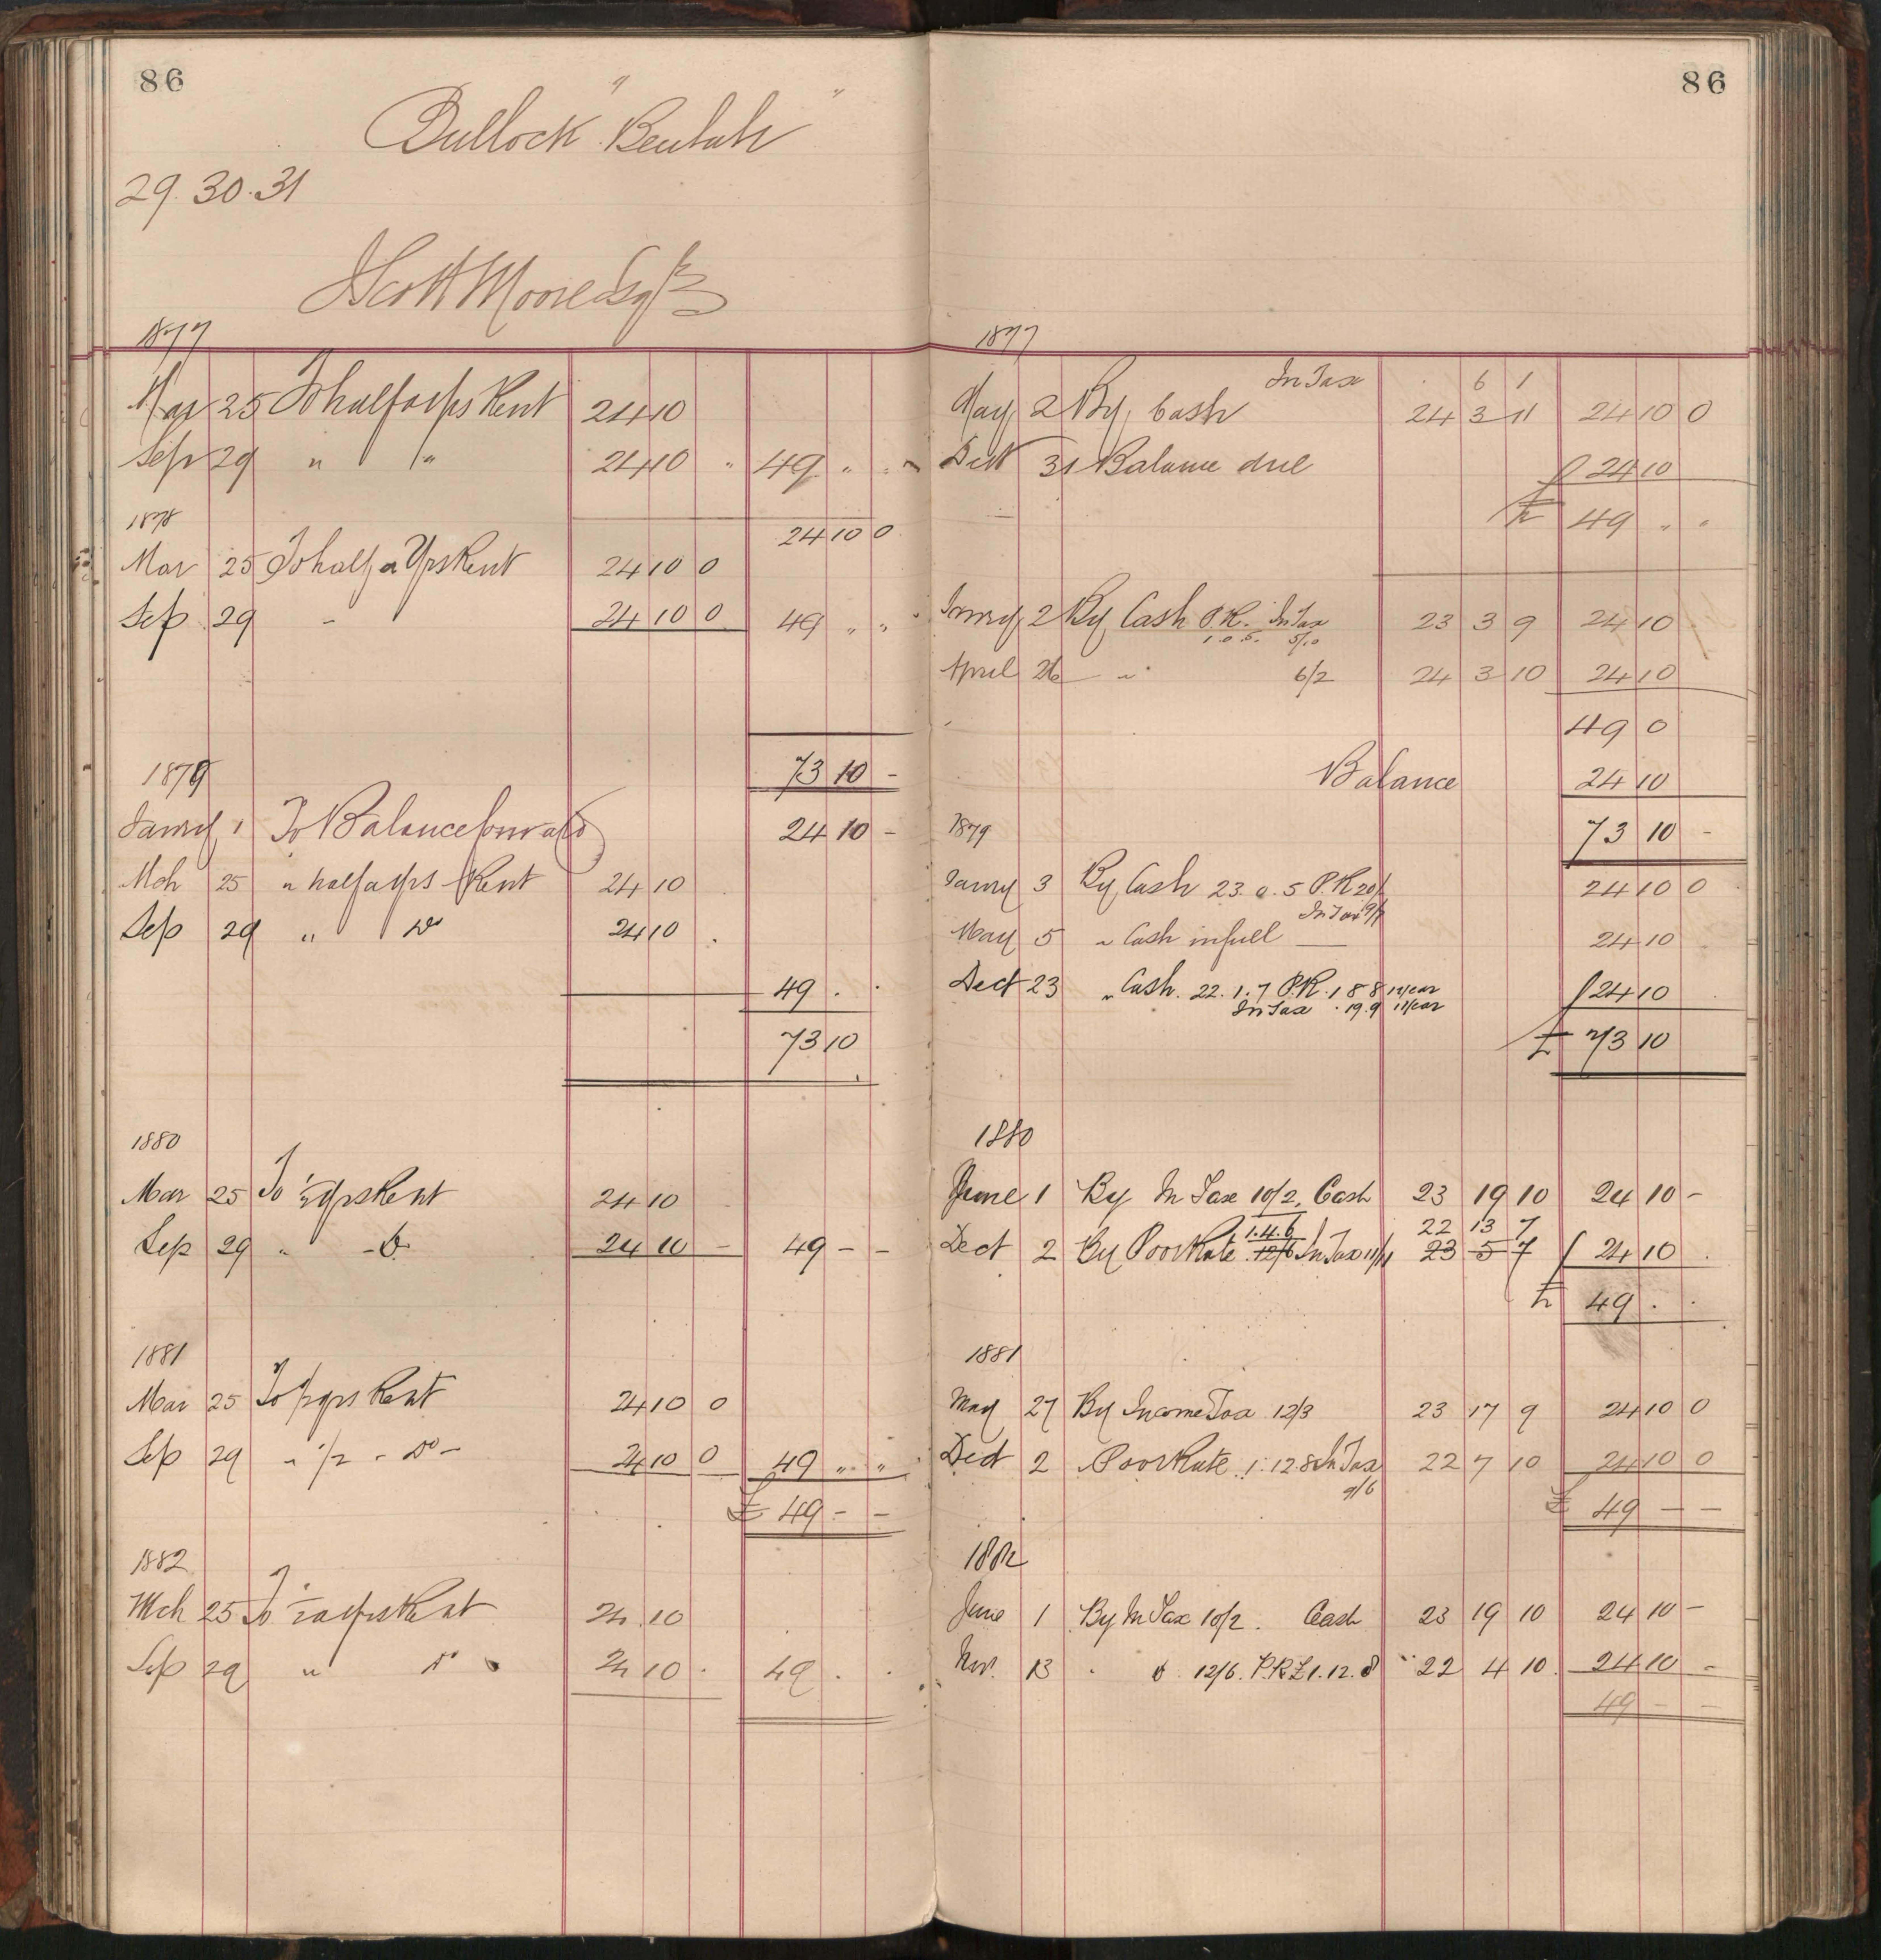 86
"Bullock "Beulah"
29. 30. 31
J Scott Moore Esqre
1877
Mar 25 To half a yrs Rent 24 10
Sep 29 " " 24 10 " 49 " "
24 10 0
1878
Mar 25 To half a Yrs Rent 24 10 0
Sep 29 - 24 10 0 49 " "
73 10 -
1879
Janry 1 To Balance forward 24 10 -
Mch 25 " half a yrs Rent 24 10
Sep 29 " Do 24 10
49 . .
73 10
1880
Mar 25 To ½ yrs Rent 24 10
Sep 29 " - Do 24 10 - 49 - -
1881
Mar 25 To ½ yrs Rent 24 10 0
Sep 29 " 1/2 - Do - 24 10 0 49 " "
£ 49 - -
1882
Mch 25 To ½ a yrs Rent 24 10
Sep 29 " Do 24 10 . 49 . .
86
1877
In Tax . 6 1
May 2 By Cash 24 3 11 24 10 0
Dect 31 Balance due 24 10
£ 49 " "
Janry 2 By Cash P.R. In Tax 23 3 9 24 10
1. 0. 5. 5/10
April 26 " 6/2 24 3 10 24 10
49 0
Balance 24 10
73 10 -
1879
Janry 3 By Cash 23. 0. 5 P.R 20/ 24 10 0
In Tax 9/7
May 5 " Cash in full 24 10
Dect 23 " Cash. 22. 1. 7 P.R. 1 8 8 1 year 24 10
In Tax . 19. 9 1 year
£ 73 10
1880
June 1 By In Tax 10/2, Cash 23 19 10 24 10 -
1.4.6 22 13 7
Dect 2 By Poor Rate 12/6 In Tax 11/11 23 5 7 24 10
£ 49 . .
1881
May 27 By Income Tax 12/3 23 17 9 24 10 0
Dect 2 " Poor Rate 1. 12. 8 In Tax 22 7 10 24 10 0
9/6
£ 49 - -
1882
June 1 By In Tax 10/2. Cash 23 19 10 24 10 -
Nov. 13 " Do. 12/6. P.R £1. 12. 8 22 4 10 24 10 -
49 - -